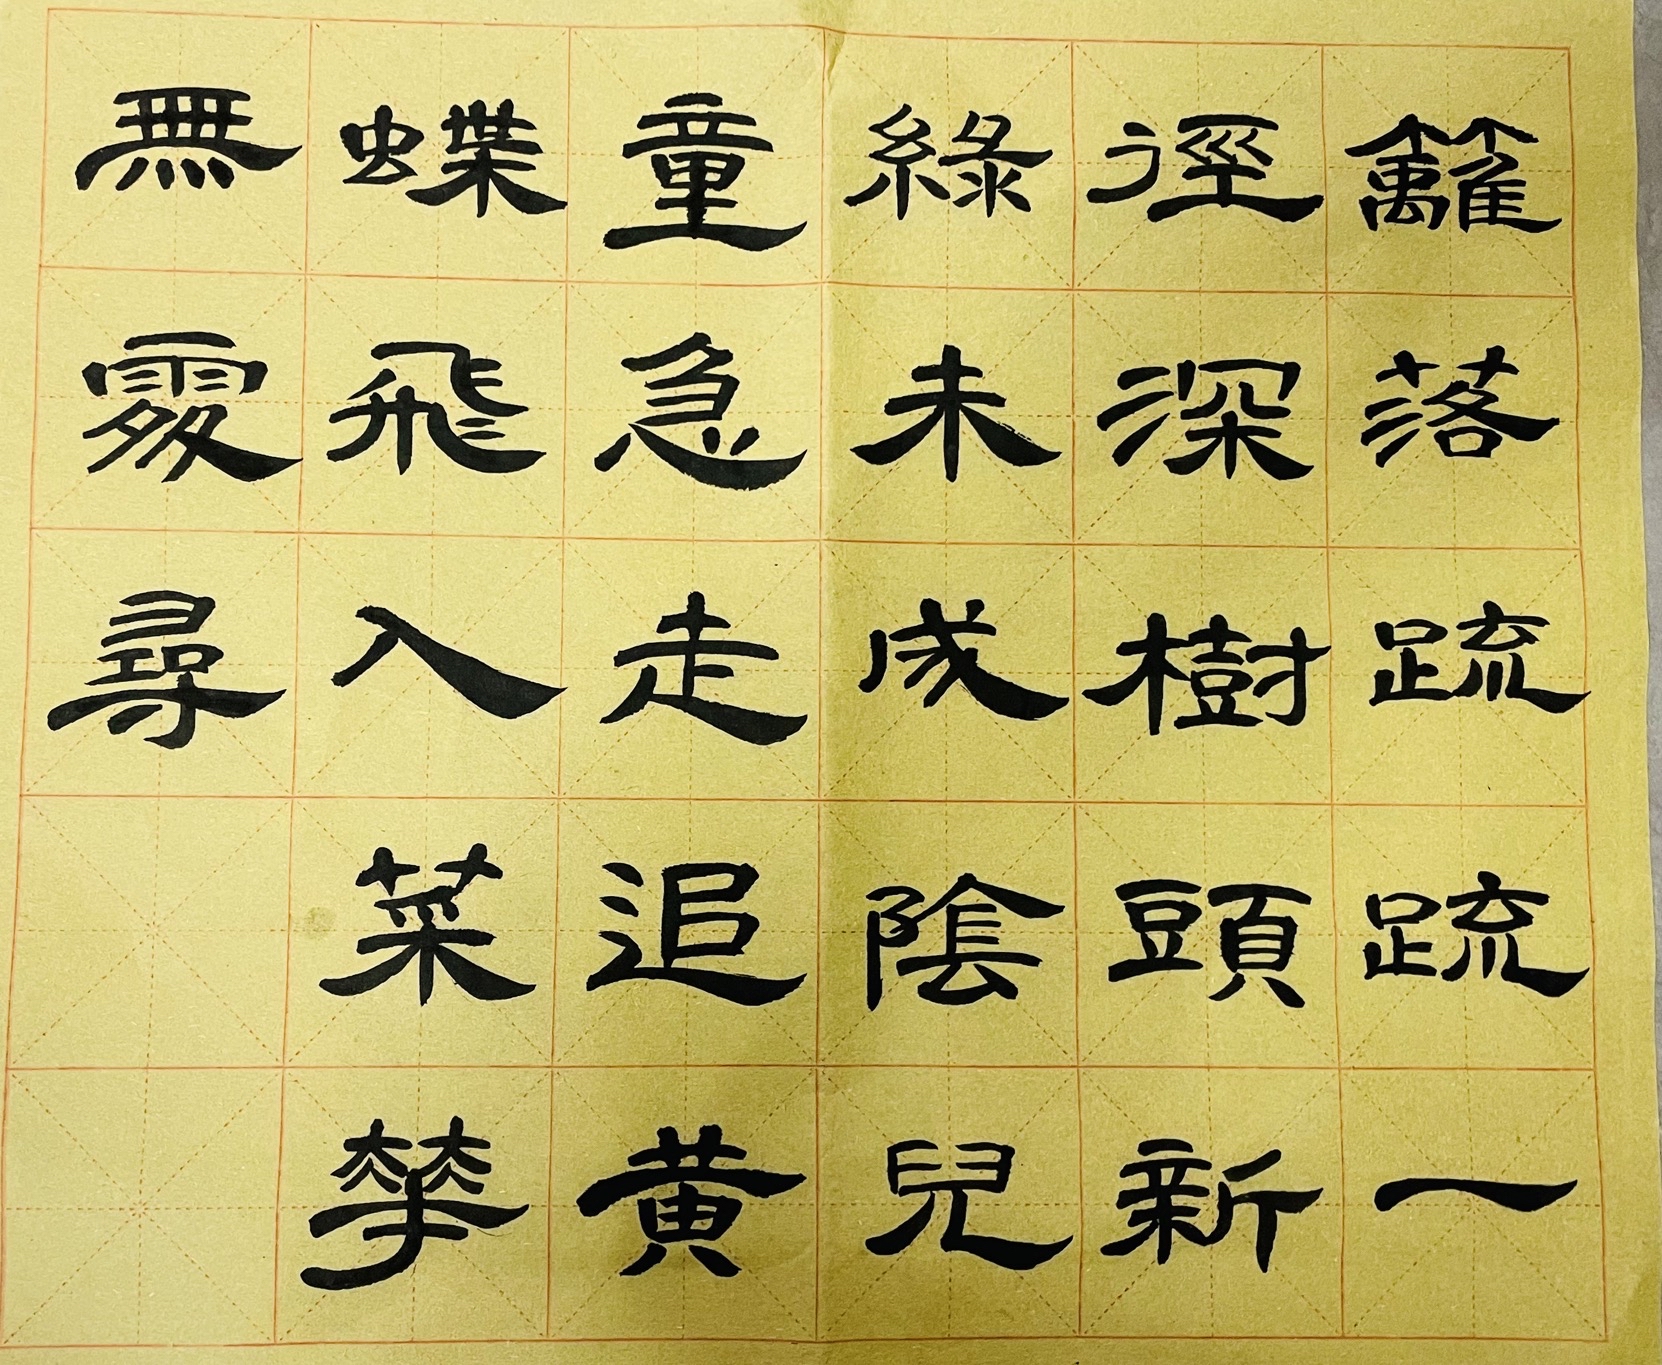 籬落䟽䟽一
徑深樹頭新
綠未成隂兒
童急走追黄
蝶飛入菜華
無處尋